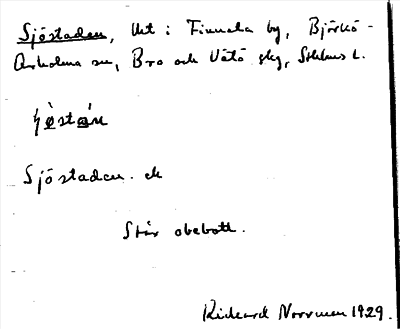 Sjöstaden, lht i Finnala by, Björkö-
Arholma sn, Bro och Vätö skg, Sthlms l.
Sjöstaden. ek
Står obebott.
Rickard Norrman 1929.